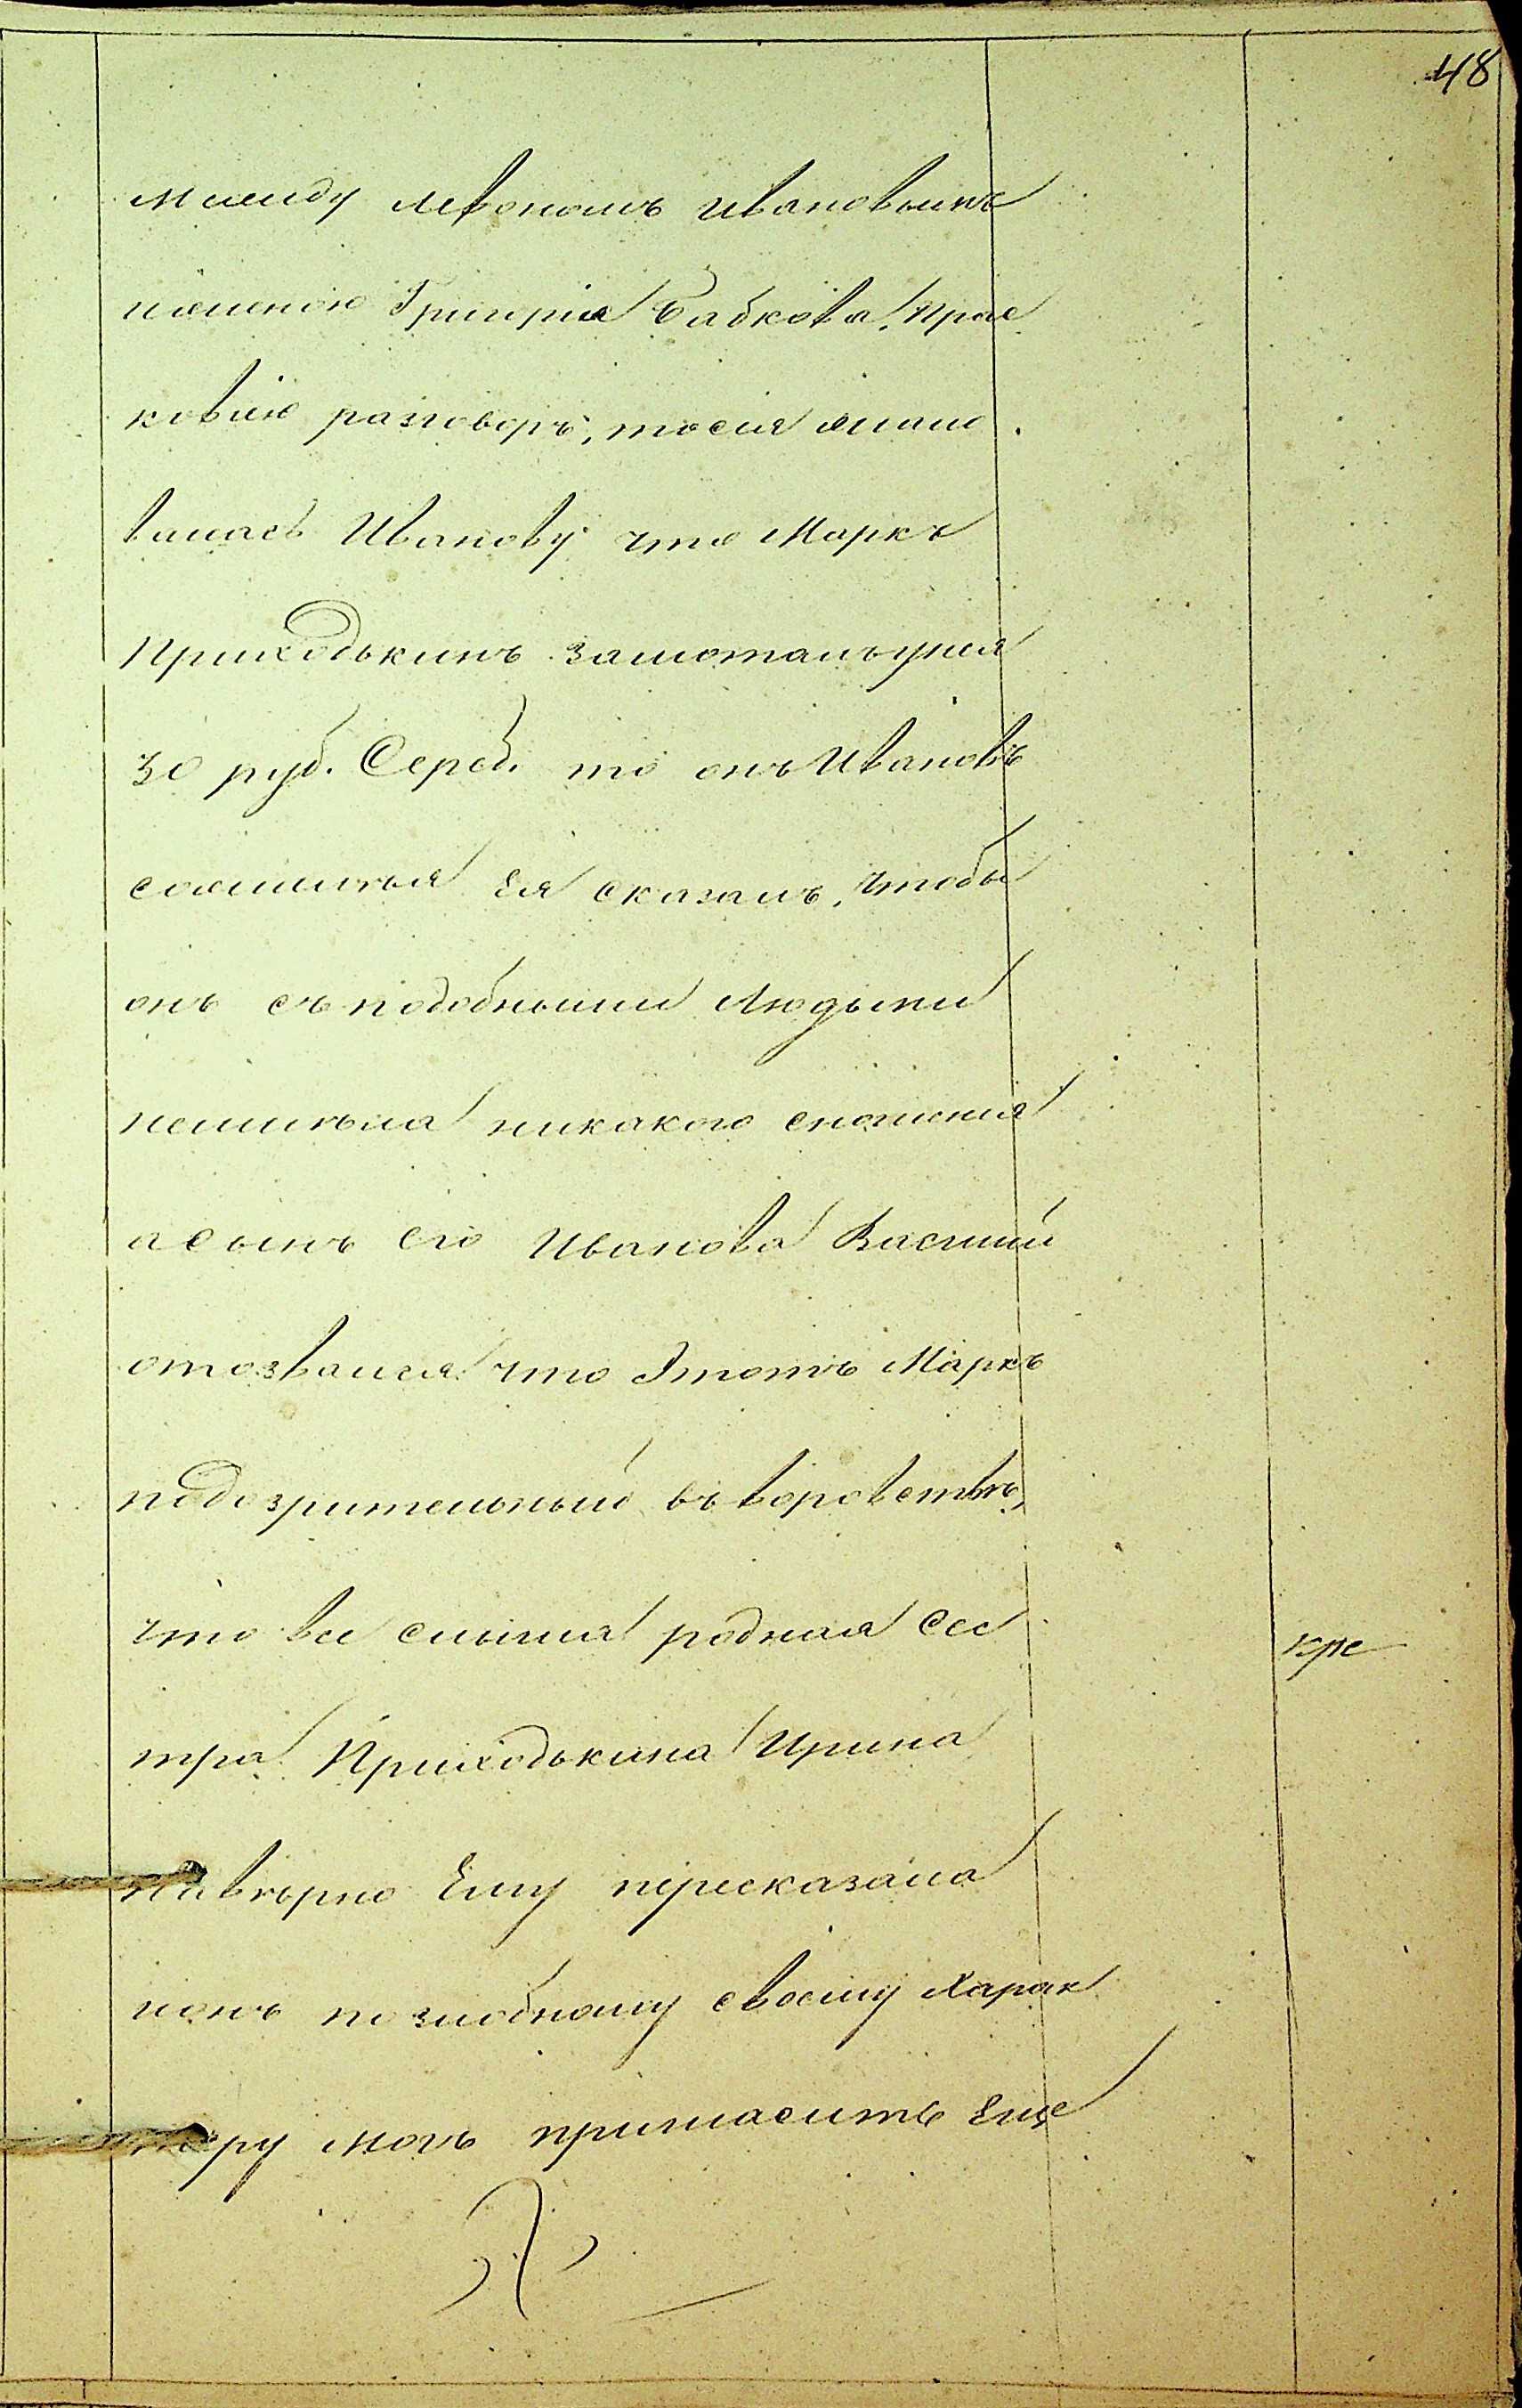 48
между Левономъ Ивановымъ
иженою Григрія Бабкова, Прас
ковіею разговоръ, то сія жало
валась Иванову что Маркъ
Приходькинъ замоталъ у нея
30 руб. Сереб. то онъ Ивановъ
сожалѣя Ея сказалъ, чтобы
онъ съ подобными Людьми
неимѣла никакого сношенія
а сынъ его Иванова Василий
отозвался что Этотъ Маркъ
подозрительный въ воровствѣ,
что все слыша родная сес
тра Приходькина Ирина
навѣрно Ему пересказала
ионъ по злобному своему Харак
теру могъ пригласить Еще
кре